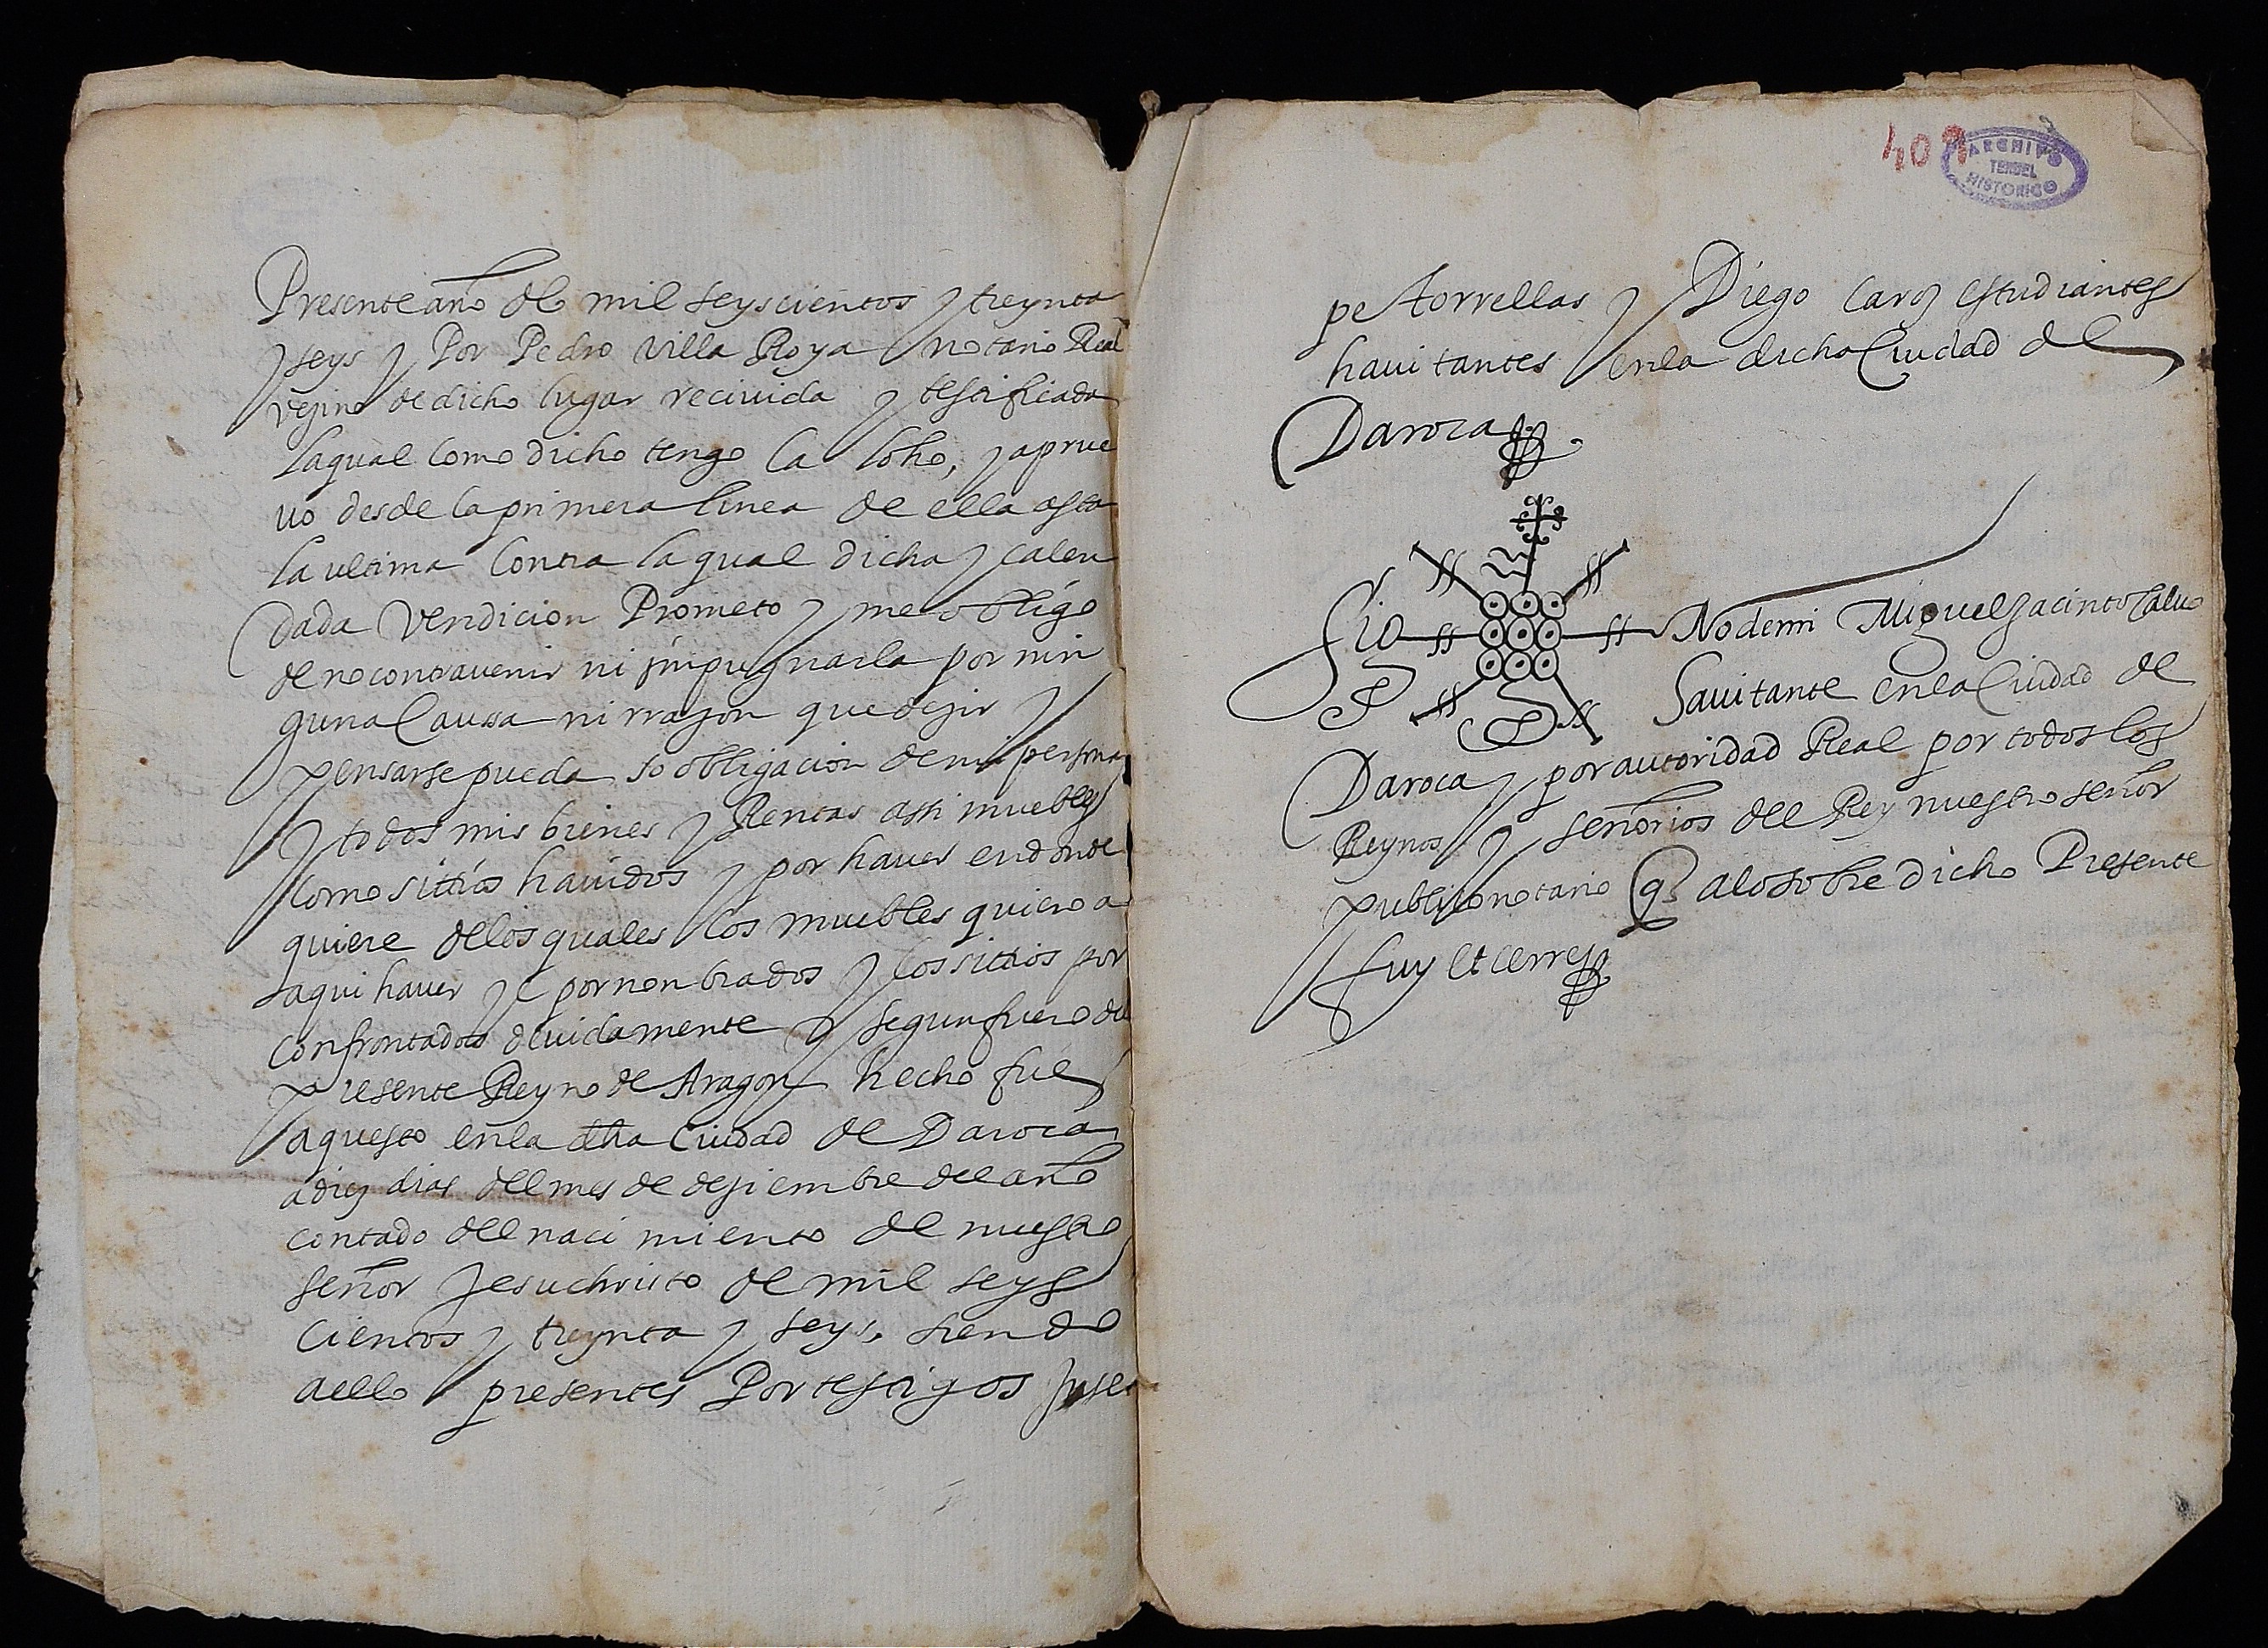 Presente año de mil seyscientos y treynta
y seys y Por Pedro Villa Roya notario Real
vezino de dicho lugar recivida y testificada
la qual como dicho tengo la loho, y aprue
vo desde la primera linea de ella asta
la ultima Contra la qual dicha y calen
dada Vendicion Prometo y me obligo
de no contravenir ni inpugnarla por nin
guna Caussa ni rrazon que dezir y
pensarse pueda so obligacion de mi persona
y todos mis bienes y Rentas assi muebles
como sittios havidos y por haver en donde
quiere de los quales los muebles quiero a
aqui haver y por nonbrados y los sittios por
confrontados devidamente y segun fuero del
presente Reyno de Aragon hecho fue
aquesto en la dha Ciudad de Daroca
a diez dias del mes de deziembre del año
contado del naci miento de nuestro
señor Jesuchristo de mil seys
cientos y treynta y seys, siendo
a ello presentes Por testigos Juse
pe torrellas y Diego Caro estudiantes
havitantes en la dicha Ciudad de
Daroca
ARCHIVO
TERUEL
HISTORICO
Sig No de mi Miguel Jacinto Calvo
havitante en la Ciudad de
Daroca y por autoridad Real por todos los
Reynos y señorios del Rey nuestro señor
publico notario q a lo sobre dicho Presente
fuy et cerre